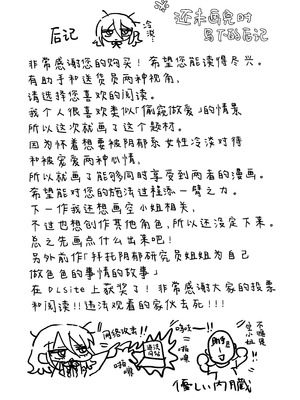 还未画完时
写下的后记
后记
冷漠
非常感谢您的购买！希望您能读得尽兴。
有助手和送货员两种视角，
请选择您喜欢的阅读。
我个人很喜欢类似「偷窥做爱」的情景
所以这次就画了这个题材。
因为怀着想要被阴郁系女性冷淡对待
和被宠爱两种心情，
所以就画了能够同时享受到两者的漫画。
希望能对您的施法过程添一臂之力。
下一作我还想画空小姐相关，
不过也想创作其他角色，所以还没定下来。
总之先画点什么出来吧！
另外前作「拜托阴郁研究员姐姐为自己
做色色的事情的故事」
在DLsite上获奖了！非常感谢大家的投票
和阅读！！违法观看的家伙去死！！！
网络攻击！！
违法
网站
啪嚓
助手
优しい内臓